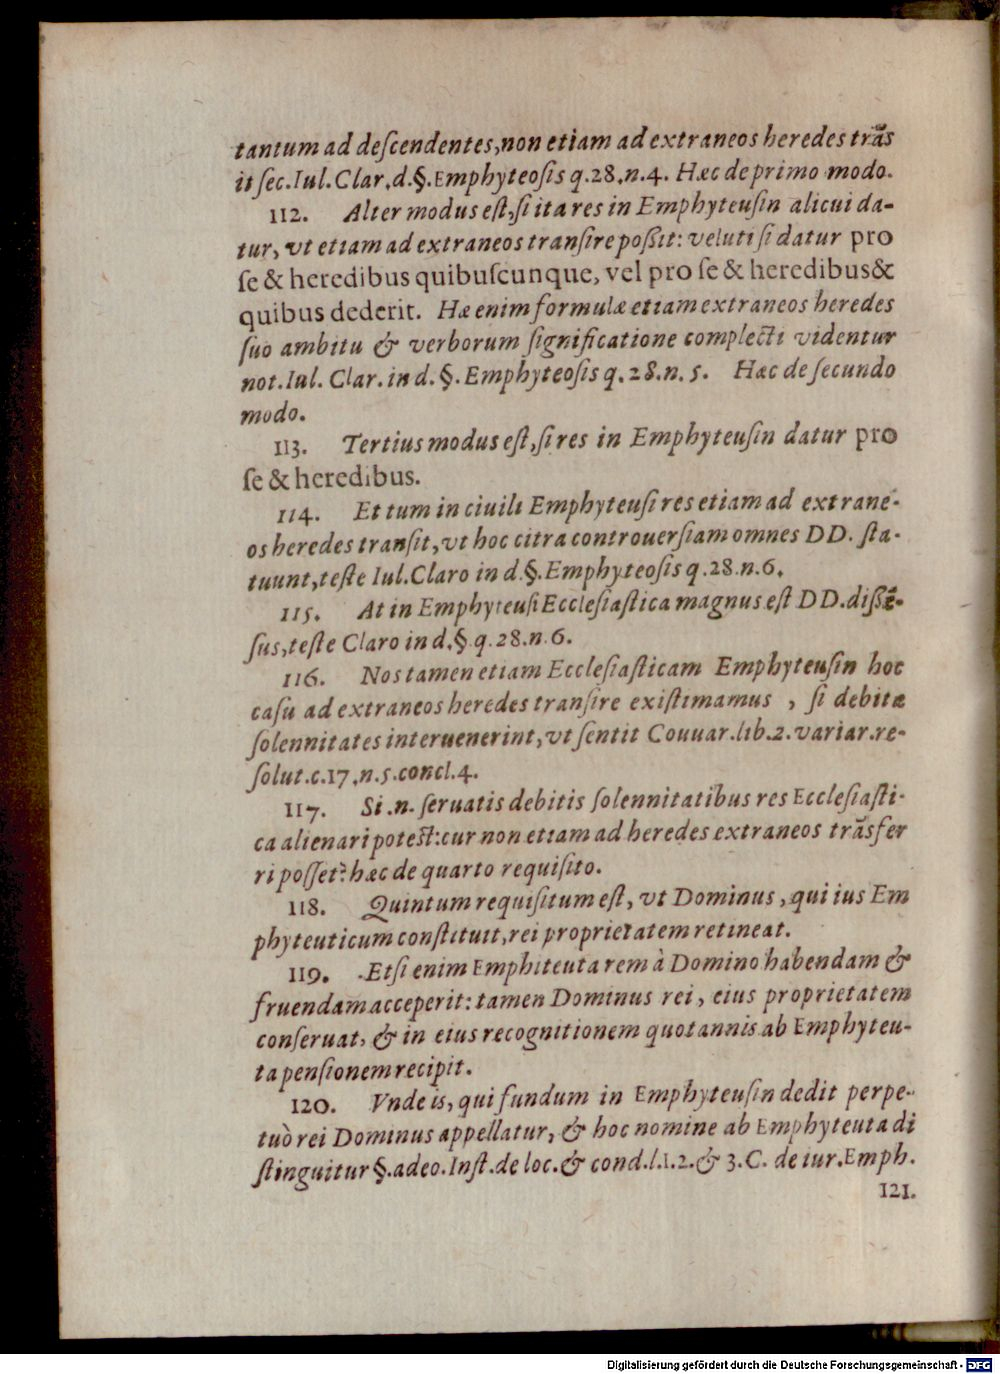 tantum ad deſcendentes,non etiam ad extraneos heredes trãs
it ſec. Iul. Clar. d. §. Emphyteoſis q. 28. n. 4. Hæc de primo modo.
112. Alter modus eſt, ſi ita res in Emphyteuſin alicui da-
tur, vt etiam ad extraneos tranſire poſſit: veluti ſi datur pro
ſe & heredibus quibuſcunque, vel pro ſe & heredibus &
quibus dederit. Hæ enim formulæ etiam extraneos heredes
ſuo ambitu & verborum ſignificatione complecti videntur
not. Iul. Clar. in d. §. Emphyteoſis q. 28. n. 5. Hæc de ſecundo
modo.
113. Tertius modus eſt, ſi res in Emphyteuſin datur pro
ſe & heredibus.
114. Et tum in ciuili Emphyteuſi res etiam ad extrane-
os heredes tranſit, vt hoc citra controuerſiam omnes DD. ſta-
tuunt, teſte Iul. Claro in d. §. Emphyteoſis q. 28. n. 6.
115. At in Emphyteuſi Eccleſiaſtica magnus eſt DD. diſſẽ-
ſus, teſte Claro in d. § q. 28. n. 6.
116. Nos tamen etiam Eccleſiaſticam Emphyteuſin hoc
caſu ad extraneos heredes tranſire exiſtimamus , ſi debitæ
ſolennitates interuenerint, vt ſentit Couuar. lib. 2. variar. re-
ſolut. c. 17. n. 5. concl. 4.
117. Si .n. ſeruatis debitis ſolennitatibus res Eccleſiaſti-
ca alienari poteſt: cur non etiam ad heredes extraneos trãsfer
ri poſſet? hæc de quarto requiſito.
118. Quintum requiſitum eſt, vt Dominus, qui ius Em
phyteuticum conſtituit, rei proprietatem retineat.
119. Etſi enim Emphiteuta rem à Domino habendam &
fruendam acceperit: tamen Dominus rei, eius proprietatem
conſeruat, & in eius recognitionem quotannis ab Emphyteu-
ta penſionem recipit.
120. Vnde is, qui fundum in Emphyteuſin dedit perpe-
tuò rei Dominus appellatur, & hoc nomine ab Emphyteuta di
ſtinguitur §. adeo. Inſt. de loc. & cond. l. 1. 2. & 3. C. de iur. Emph.
121.
Digitalisierung gefördert durch die Deutsche Forschungsgemeinschaft - DFG